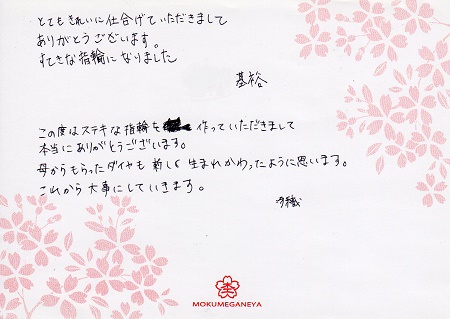 とてもきれいに仕合げていただきまして
ありがとうございます。
すてきな指輪になりました
基裕
この度はステキな指輪を 作っていただきまして
本当にありがとうございます。
母からもらったダイヤも 新しく 生まれかわったように思います。
これから大事にしていきます。
MOKUMEGANEYA